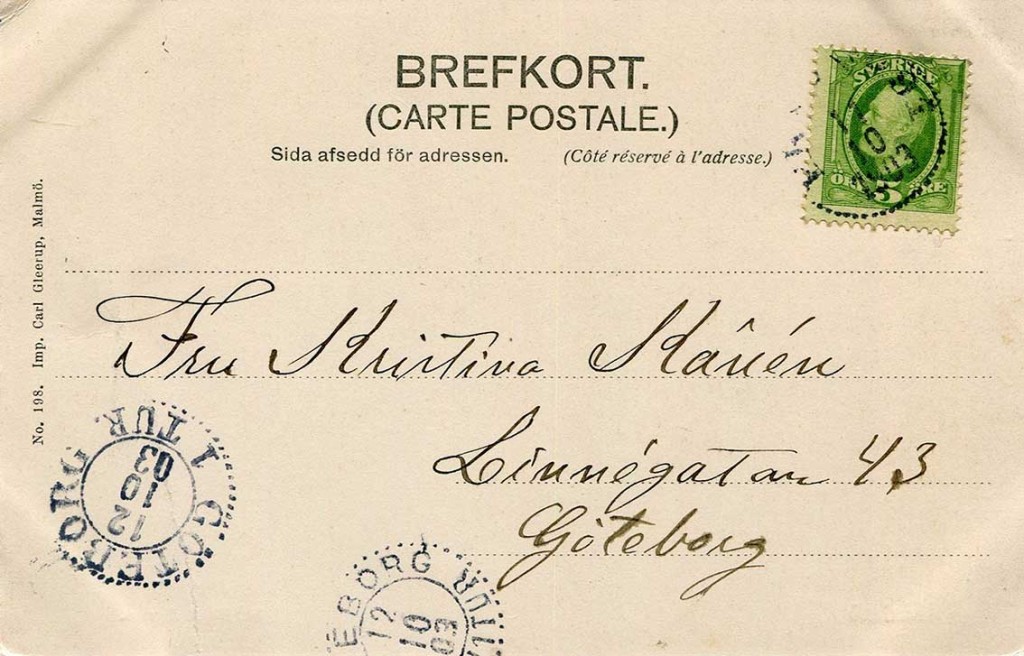 BREFKORT.
(CARTE POSTALE.)
Sida afsedd för adressen. (Côté réservé à l'adresse.)
SVERIGE
ÖRE 5 ÖRE
10
03
No. 198. Imp. Carl Gleerup, Malmö.
Fru Kristina
Linnégatan 43
Göteborg
GÖTEBORG 1 TUR.
12
10
03
EBORG TUR
12
10
03